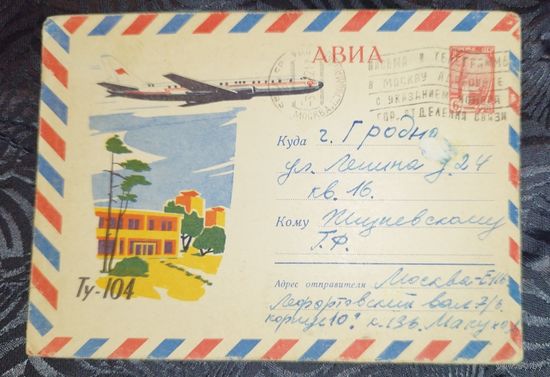 АВИА
ПИСЬМА И ТЕЛЕГРАММЫ
В МОСКВУ АДРЕСУЙТЕ
С УКАЗАНИЕМ
ГОР. ОТДЕЛЕНИЯ СВЯЗИ
МОСКВА
Куда г. Гродно
ул. Ленина д. 24
кв. 16.
Кому
Г.Ф.
Ту-104
Адрес отправителя Москва-Е
Лефортовский вал 7/6
корпус 10 к. 136.